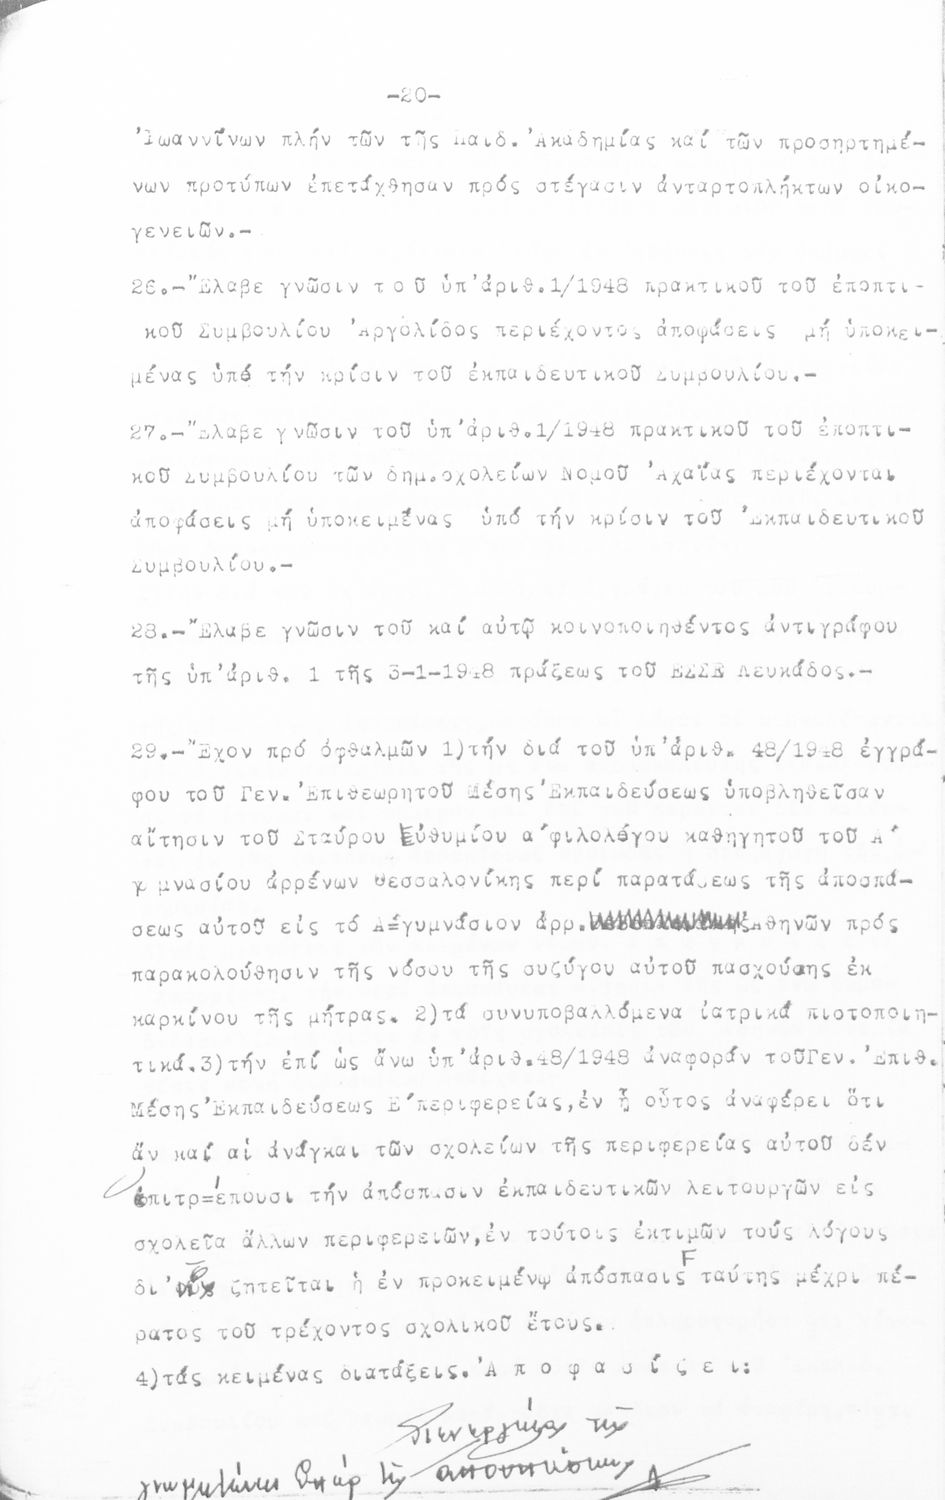 -20-
Ἰωαννίνων πλήν τῶν τῆς Παιδ. Ἀκαδημίας καί τῶν προσηρτημέ-
νων προτύπων ἐπετάχθησαν πρός στέγασιν ἀνταρτοπλήκτων οἰκο-
γενειῶν.-
26.-Ἔλαβε γνῶσιν τ ο ῦ ὑπ'ἀριθ.1/1948 πρακτικοῦ τοῦ ἐποπτι-
κοῦ Συμβουλίου Ἀργολίδος περιέχοντος ἀποφάσεις μή ὑποκει-
μένας ὑπό τήν κρίσιν τοῦ ἐκπαιδευτικοῦ Συμβουλίου.-
27.-Ἔλαβε γνῶσιν τοῦ ὑπ'ἀριθ.1/1948 πρακτικοῦ τοῦ ἐποπτι-
κοῦ Συμβουλίου τῶν δημ.σχολείων Νομοῦ Ἀχαΐας περιέχονται
ἀποφάσεις μή ὑποκειμένας ὑπό τήν κρίσιν τοῦ Ἐκπαιδευτικοῦ
Συμβουλίου.-
28.-Ἔλαβε γνῶσιν τοῦ καί αὐτῷ κοινοποιηθέντος ἀντιγράφου
τῆς ὑπ'ἀριθ. 1 τῆς 3-1-1948 πράξεως τοῦ ΕΣΣΕ Λευκάδος.-
29.-Ἔχον πρό ὀφθαλμῶν 1)τήν διά τοῦ ὑπ'ἀριθ. 48/1948 ἐγγρά-
φου τοῦ Γεν.Ἐπιθεωρητοῦ Μέσης Ἐκπαιδεύσεως ὑποβληθεῖσαν
αἴτησιν τοῦ Σταύρου Εὐθυμίου α'φιλολόγου καθηγητοῦ τοῦ Α'
γυμνασίου ἀρρένων Θεσσαλονίκης περί παρατάσεως τῆς ἀποσπά-
σεως αὐτοῦ εἰς τό Α=γυμνάσιον ἀρρ. Ἀθηνῶν πρός
παρακολούθησιν τῆς νόσου τῆς συζύγου αὐτοῦ πασχούσης ἐκ
καρκίνου τῆς μήτρας. 2)τά συνυποβαλλόμενα ἰατρικά πιστοποιη-
τικά.3)τήν ἐπί ὡς ἄνω ὑπ'ἀριθ.48/1948 ἀναφοράν τοῦΓεν.Ἐπιθ.
Μέσης Ἐκπαιδεύσεως Ε'περιφερείας,ἐν ᾗ οὗτος ἀναφέρει ὅτι
ἄν καί αἱ ἀνάγκαι τῶν σχολείων τῆς περιφερείας αὐτοῦ δέν
ἐπιτρ=έπουσι τήν ἀπόσπασιν ἐκπαιδευτικῶν λειτουργῶν εἰς
σχολεῖα ἄλλων περιφερειῶν,ἐν τούτοις ἐκτιμῶν τούς λόγους
δι' ζητεῖται ἡ ἐν προκειμένῳ ἀπόσπασις ταύτης μέχρι πέ-
ρατος τοῦ τρέχοντος σχολικοῦ ἔτους.
4)τάς κειμένας διατάξεις.Ἀ π ο φ α σ ί ζ ε ι:
τῆς
ὑπέρ τῆς